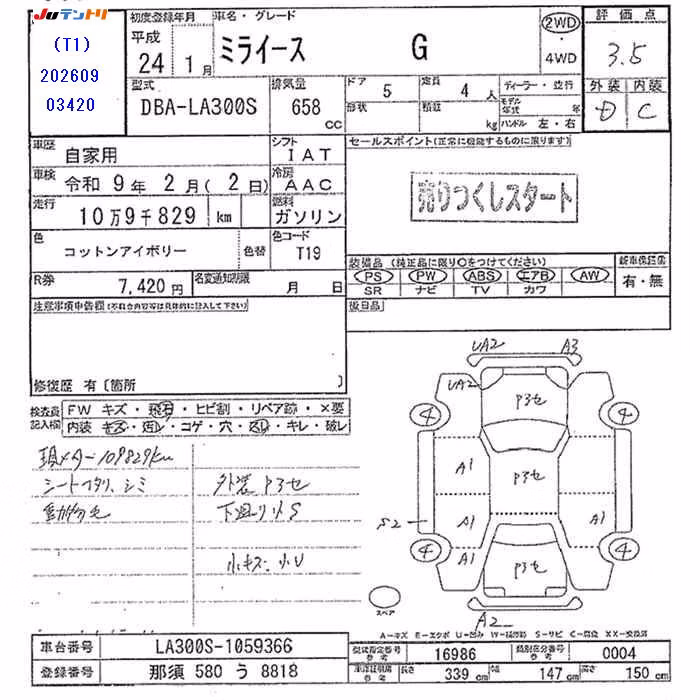 JUテントリ
(T1)
202609
03420
初度登録年月
平成
24 1月
車名・グレード
ミライース G
2WD
・
4WD
評価点
3.5
外装 内装
D C
型式
DBA-LA300S
排気量
658
CC
ドア 5
定員 4人
形状
積載 kg
ディーラー・並行
モデル年式 年
ハンドル 左・右
車歴
自家用
シフト
IAT
セールスポイント(正常に機能するものに限ります)
売りつくしスタート
車検
令和 9年 2月(2日)
冷房
AAC
走行
10万9千829 km
燃料
ガソリン
色
コットンアイボリー
色替
色コード
T19
装備品 (純正品に限り○をつけてください)
PS PW ABS エアB AW
SR ナビ TV カワ
新車保証書
有・無
R券
7,420円
名変通知期限
月 日
後日品
注意事項申告欄(不具合内容等は具体的に記入して下さい)
修復歴 有〔箇所 〕
検査員
記入欄
FW キズ・飛石・ヒビ割・リペア跡・×要
内装 キズ・汚レ・コゲ・穴・スレ・キレ・破レ
現メーター109829km
シート スタリ、シミ
動物毛
外装 P3セ
下廻り小S
小キズ、小U
UA2 A3
UA2
P3セ
4 4
A1 P3セ
S2 A1 A1
4 A1 4
P3セ
A2
スペア
A-キズ E-エクボ U-凹み W-補修跡 S-サビ C-腐食 XX-交換済
車台番号
LA300S-1059366
登録番号
那須 580 う 8818
型式指定番号
参考
16986
類別区分番号
参考
0004
車検証明席
参考
長さ 339 cm
幅 147 cm
高さ 150 cm